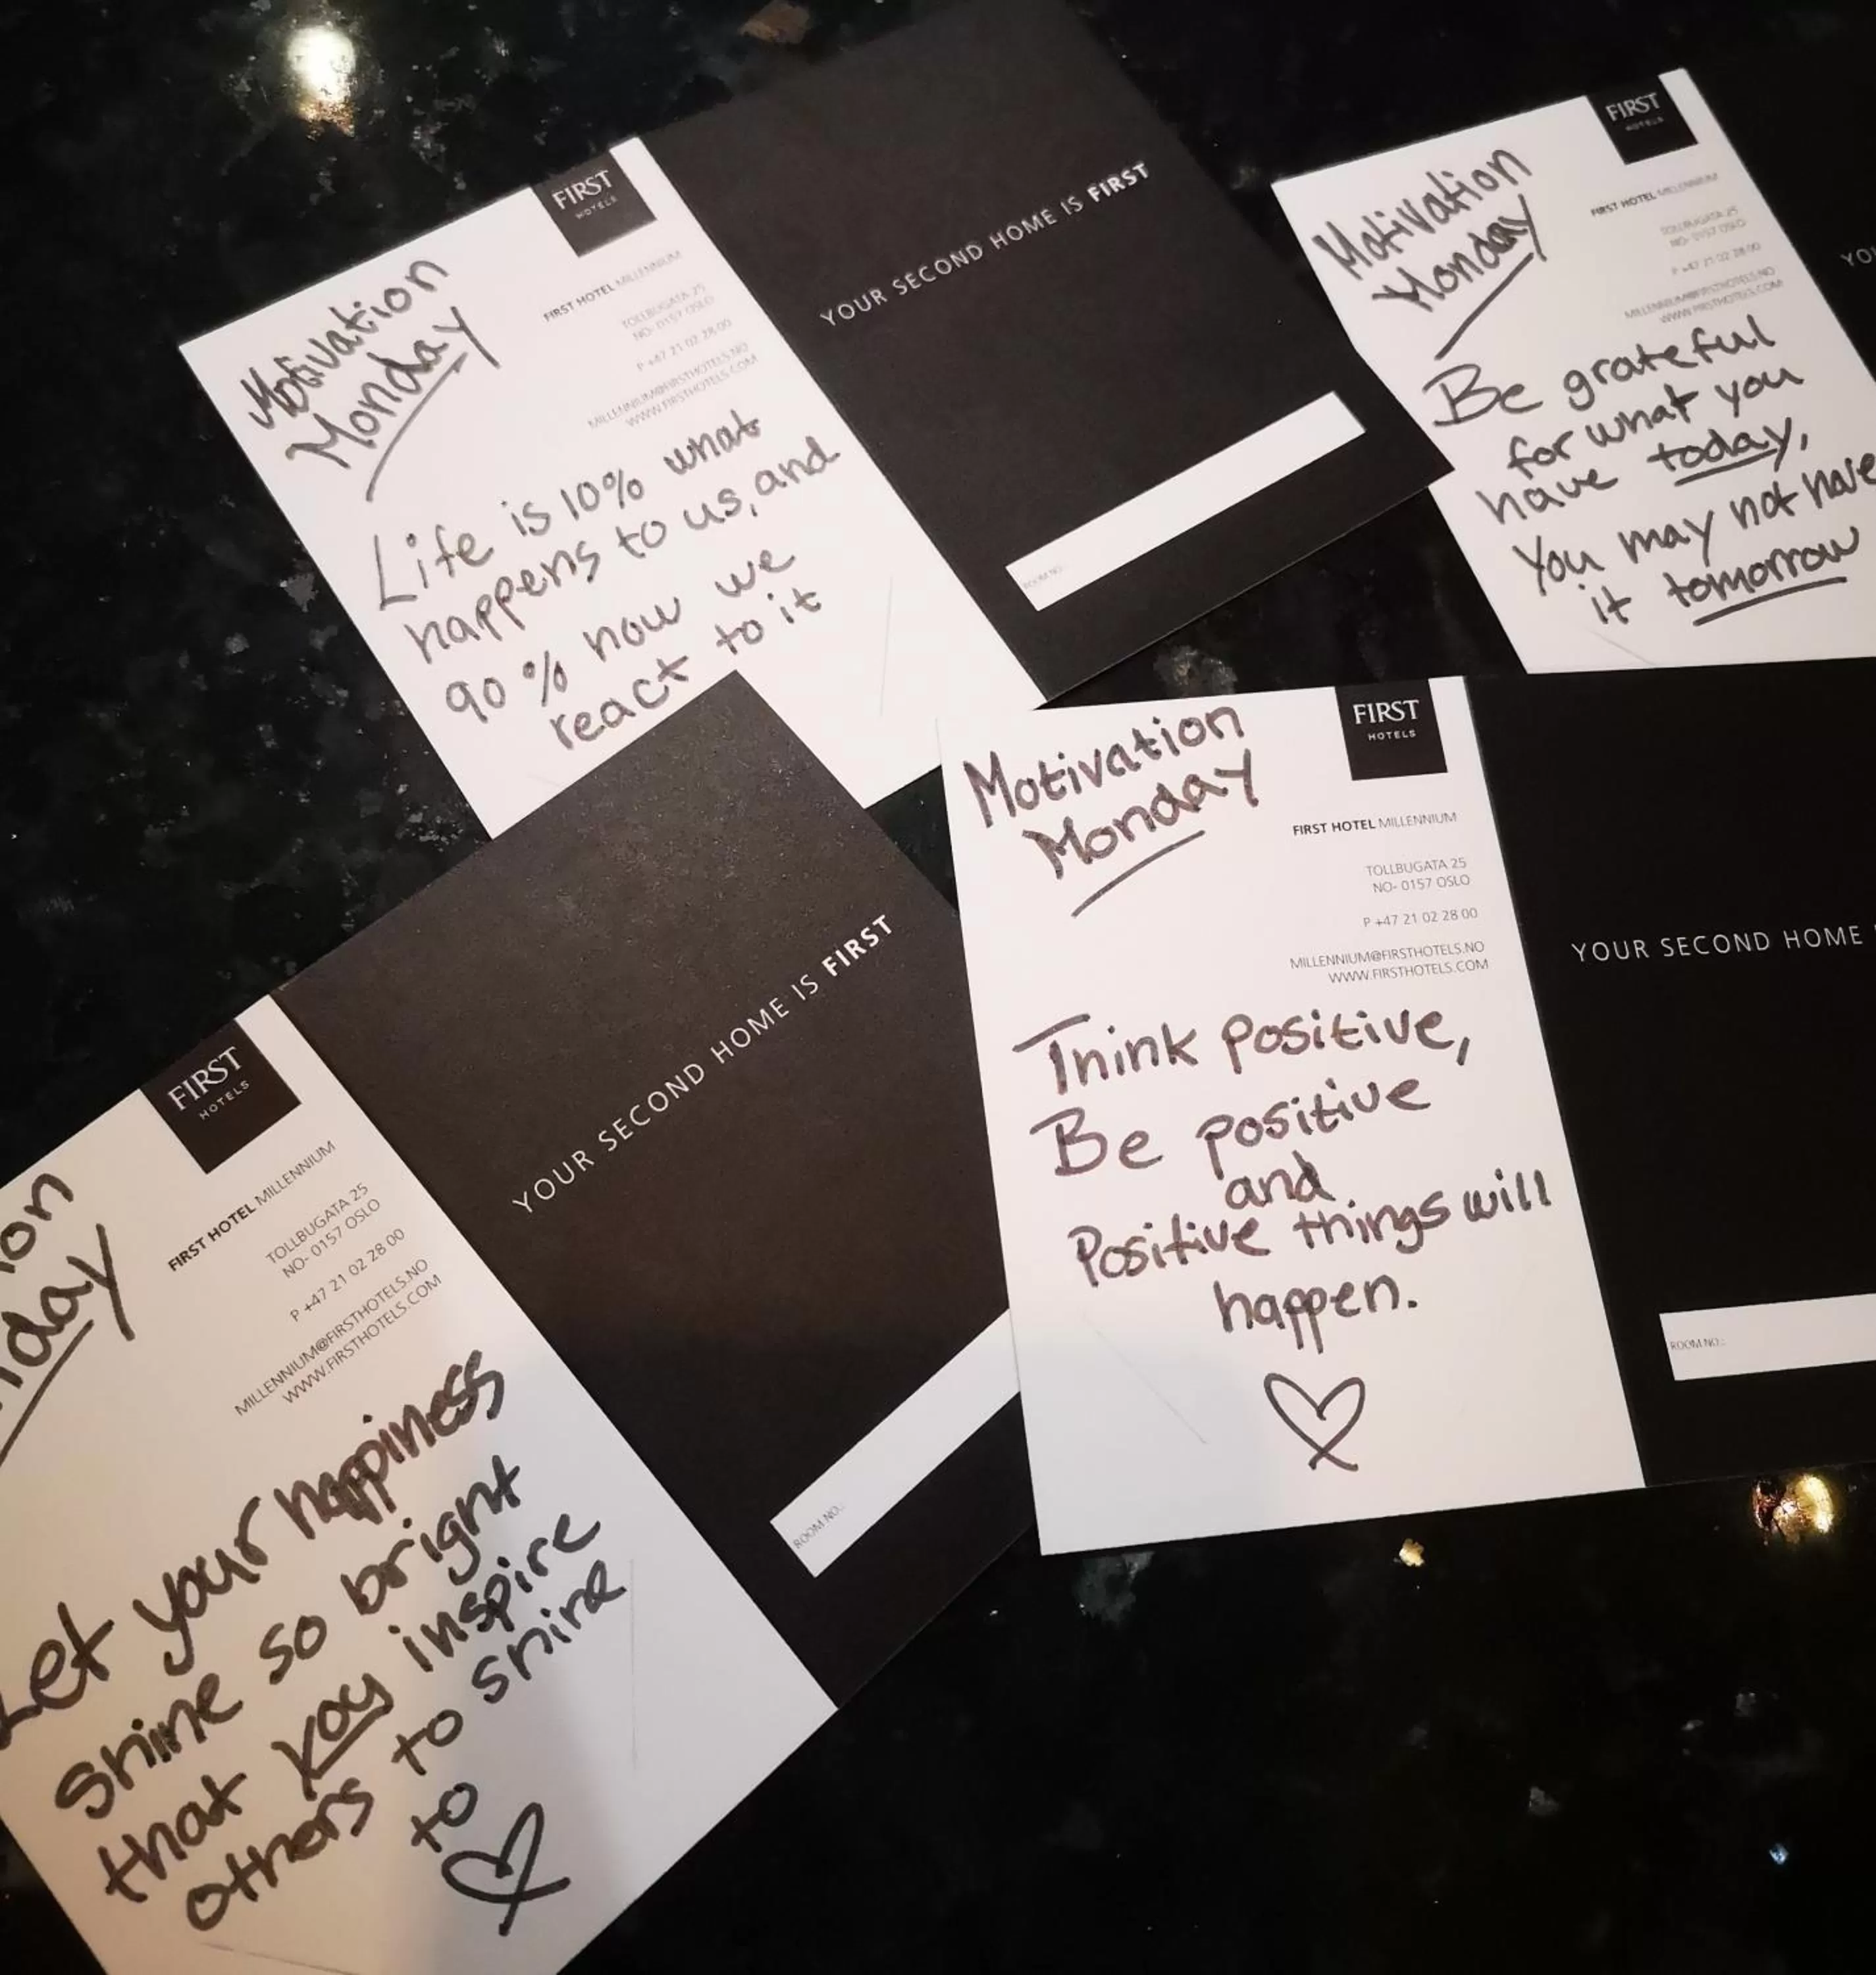 Motivation
Monday
FIRST
HOTELS
FIRST HOTEL MILLENNIUM
TOLLBUGATA 25
NO- 0157 OSLO
P +47 21 02 28 00
MILLENNIUM@FIRSTHOTELS.NO
WWW.FIRSTHOTELS.COM
Life is 10% what
happens to us, and
90% how we
react to it
YOUR SECOND HOME IS FIRST
ROOM NO.:
Motivation
Monday
FIRST
HOTELS
FIRST HOTEL MILLENNIUM
TOLLBUGATA 25
NO- 0157 OSLO
P +47 21 02 28 00
MILLENNIUM@FIRSTHOTELS.NO
WWW.FIRSTHOTELS.COM
Be grateful
for what you
have today,
You may not have
it tomorrow
YO
Motivation
Monday
FIRST
HOTELS
FIRST HOTEL MILLENNIUM
TOLLBUGATA 25
NO- 0157 OSLO
P +47 21 02 28 00
MILLENNIUM@FIRSTHOTELS.NO
WWW.FIRSTHOTELS.COM
Think positive,
Be positive
and
Positive things will
happen.
YOUR SECOND HOME
ROOM NO.:
ion
day
FIRST
HOTELS
FIRST HOTEL MILLENNIUM
TOLLBUGATA 25
NO- 0157 OSLO
P +47 21 02 28 00
MILLENNIUM@FIRSTHOTELS.NO
WWW.FIRSTHOTELS.COM
Let your happiness
shine so bright
that you inspire
others to shine
to
YOUR SECOND HOME IS FIRST
ROOM NO.: